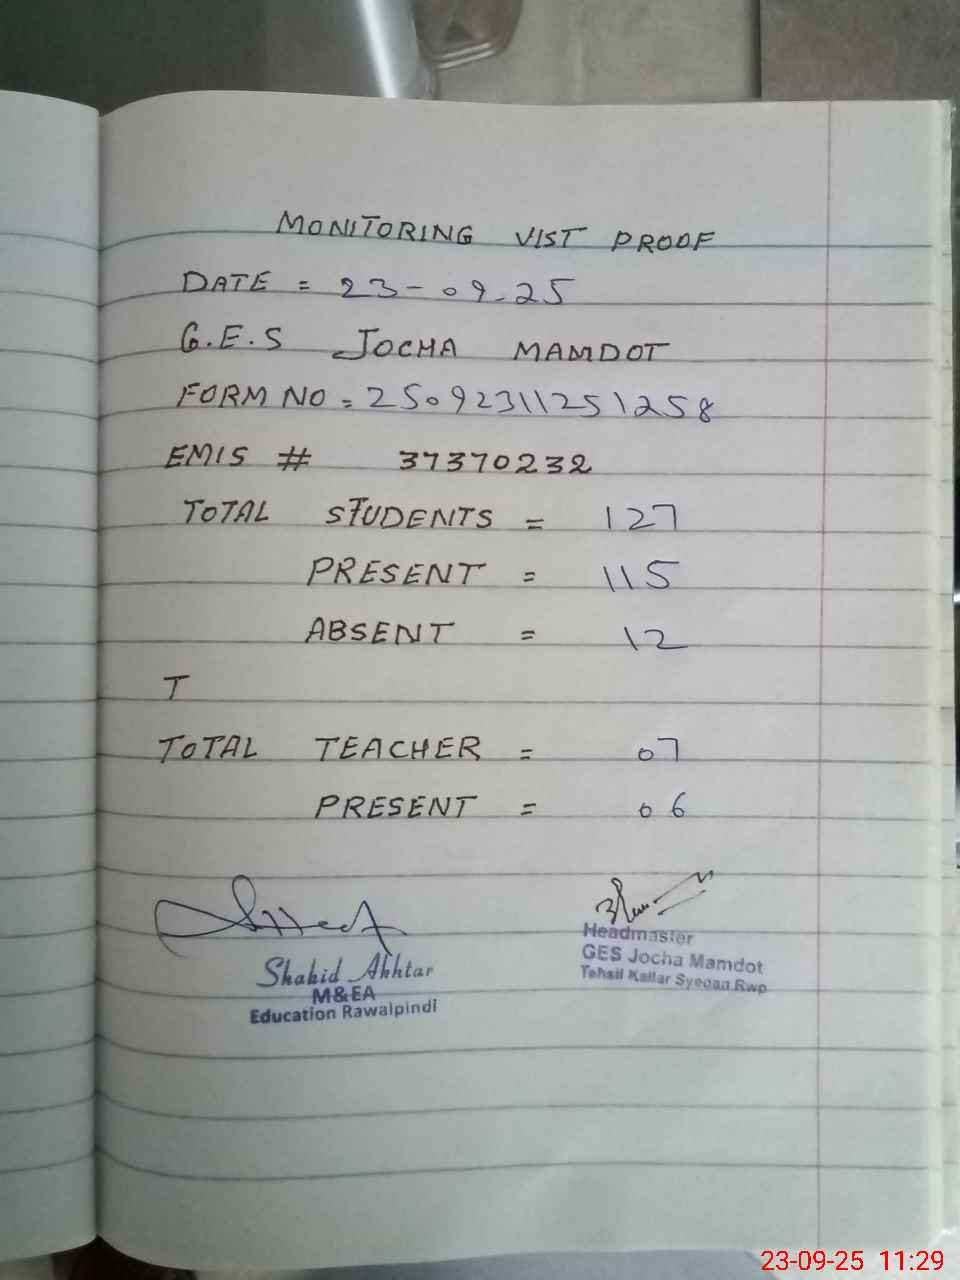 MONITORING VIST PROOF
DATE = 23-09-25
G.E.S JOCHA MAMDOT
FORM NO = 25092311251258
EMIS # 37370232
TOTAL STUDENTS = 127
PRESENT = 115
ABSENT = 12
T
TOTAL TEACHER = 07
PRESENT = 06
Shahid Akhtar
M&EA
Education Rawalpindi
Headmaster
GES Jocha Mamdot
Tehsil Kallar Syedan Rwp
23-09-25 11:29